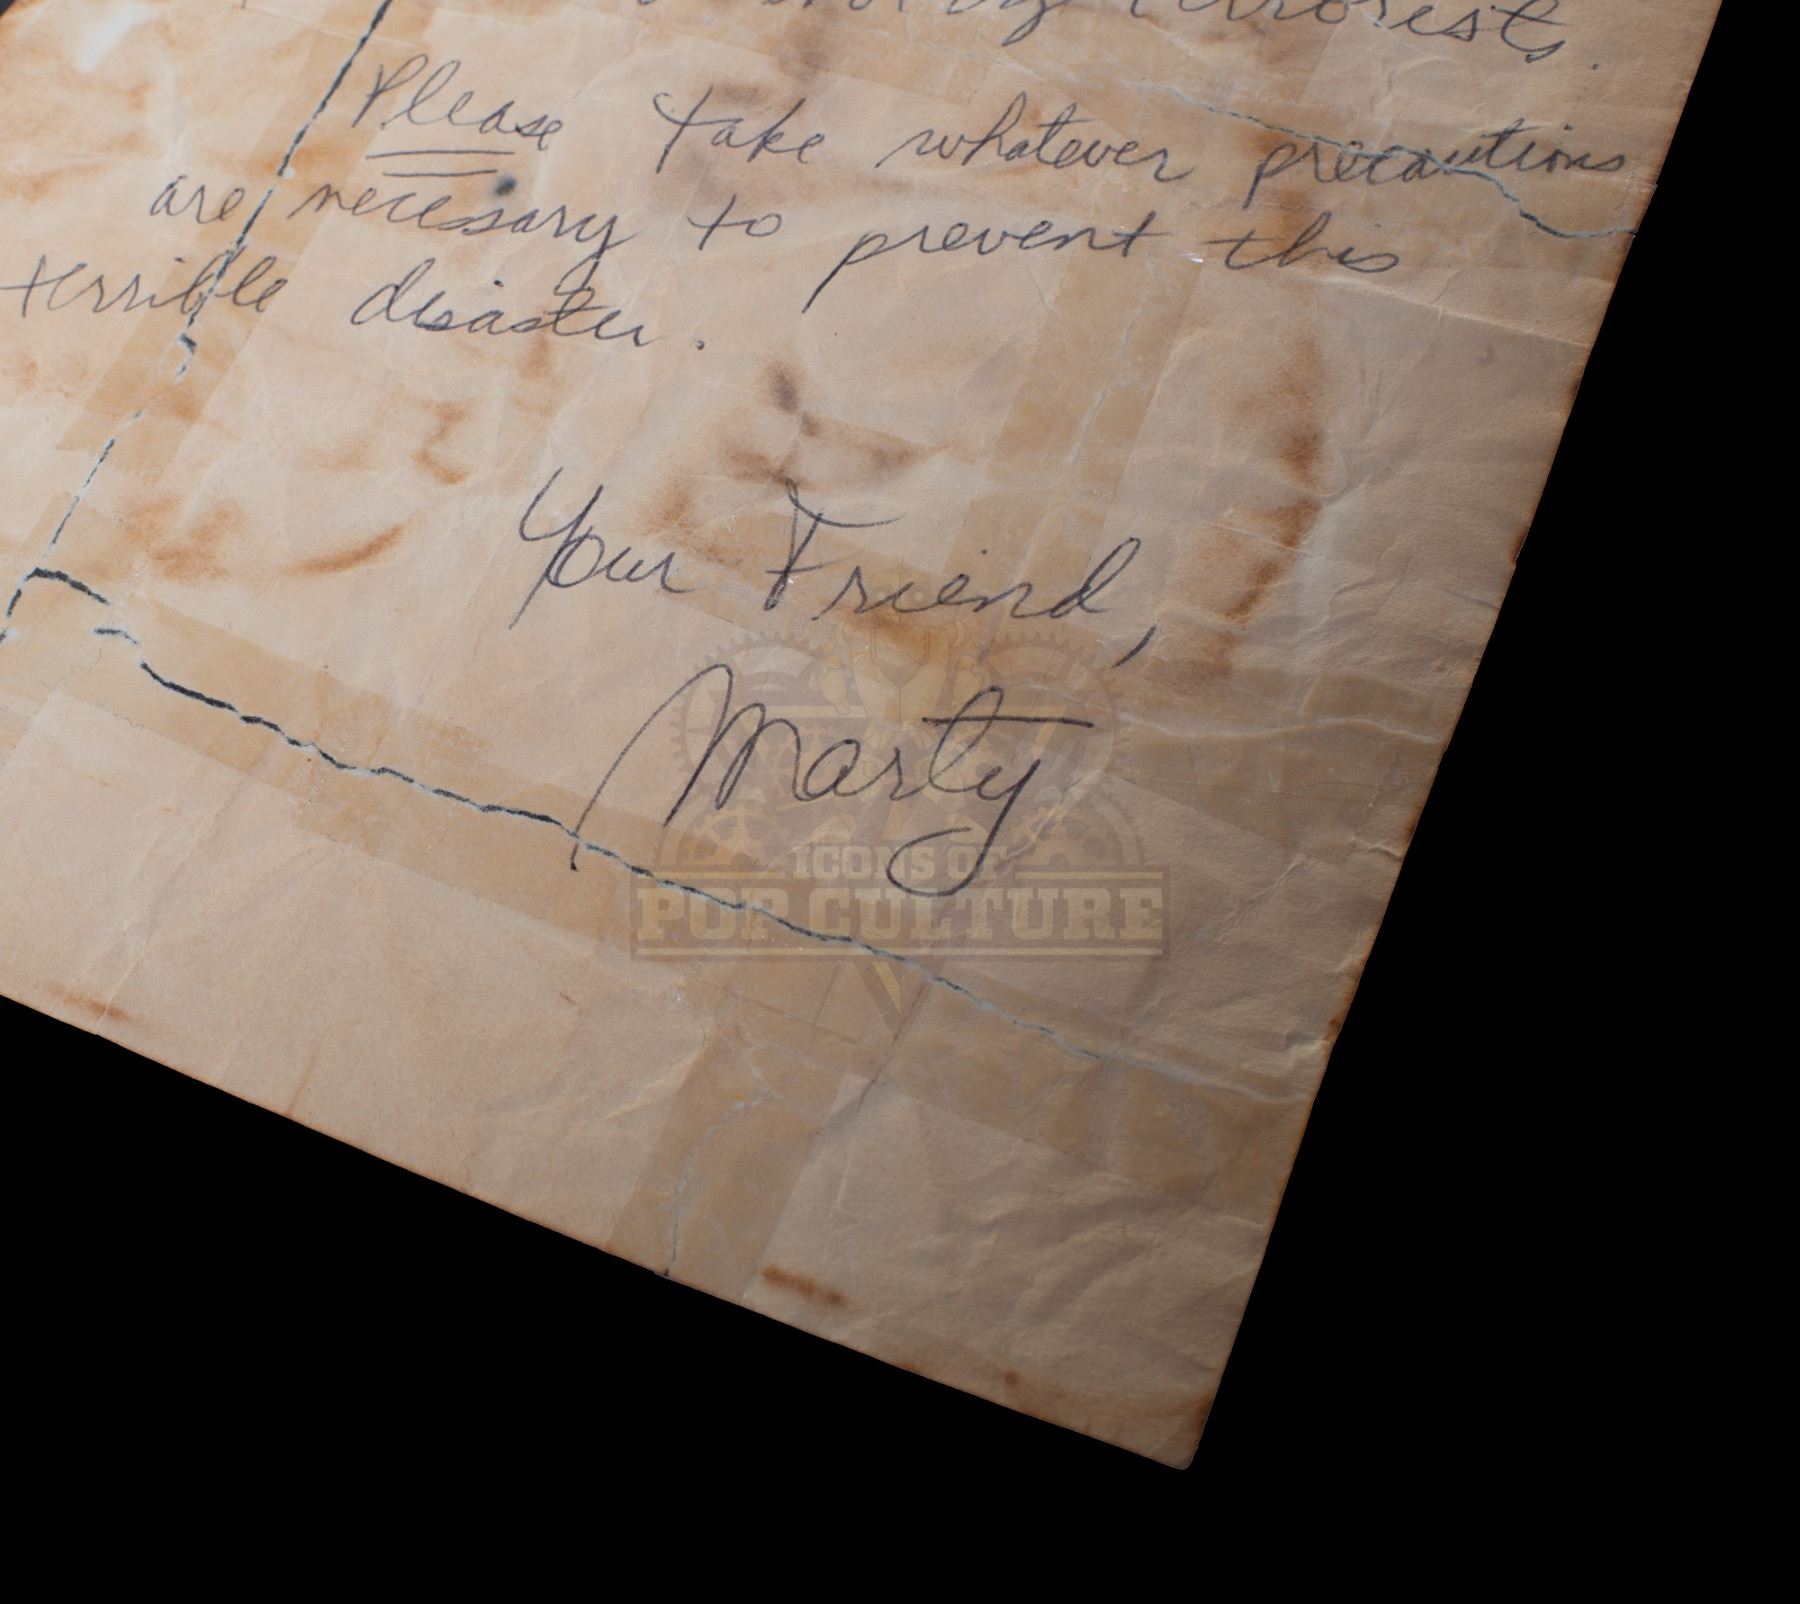 terrorists.
Please take whatever precautions
are necessary to prevent this
terrible disaster.
Your Friend,
Marty
ICONS OF
POP CULTURE